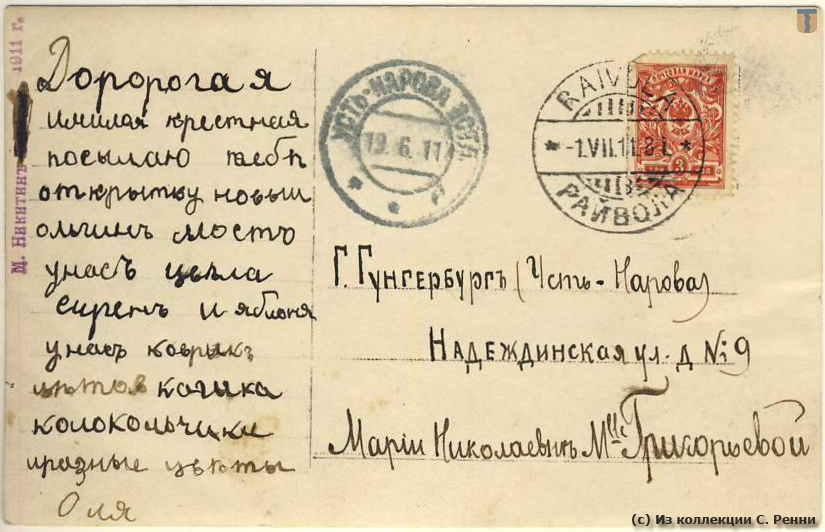 Доророгая
имилая крестная
посылаю тебѣ
открытку новый
ольгинъ мостъ
унасъ цвѣла
сирень и яблоня
унасъ коврикъ
цвѣтовъ
колокольчики
иразные цвѣты
Оля
М. Никитинъ 1911 г.
УСТЬ-НАРОВА ЭСТЛ.
19.6.11
RAIVOLA
-1.VII.11. 8 L.
РАЙВОЛА
3
Г. Гунгербургъ (Усть-Нарова)
Надеждинская ул. д № 9
Маріи Николаевнѣ Григорьевой
(c) Из коллекции С. Ренни